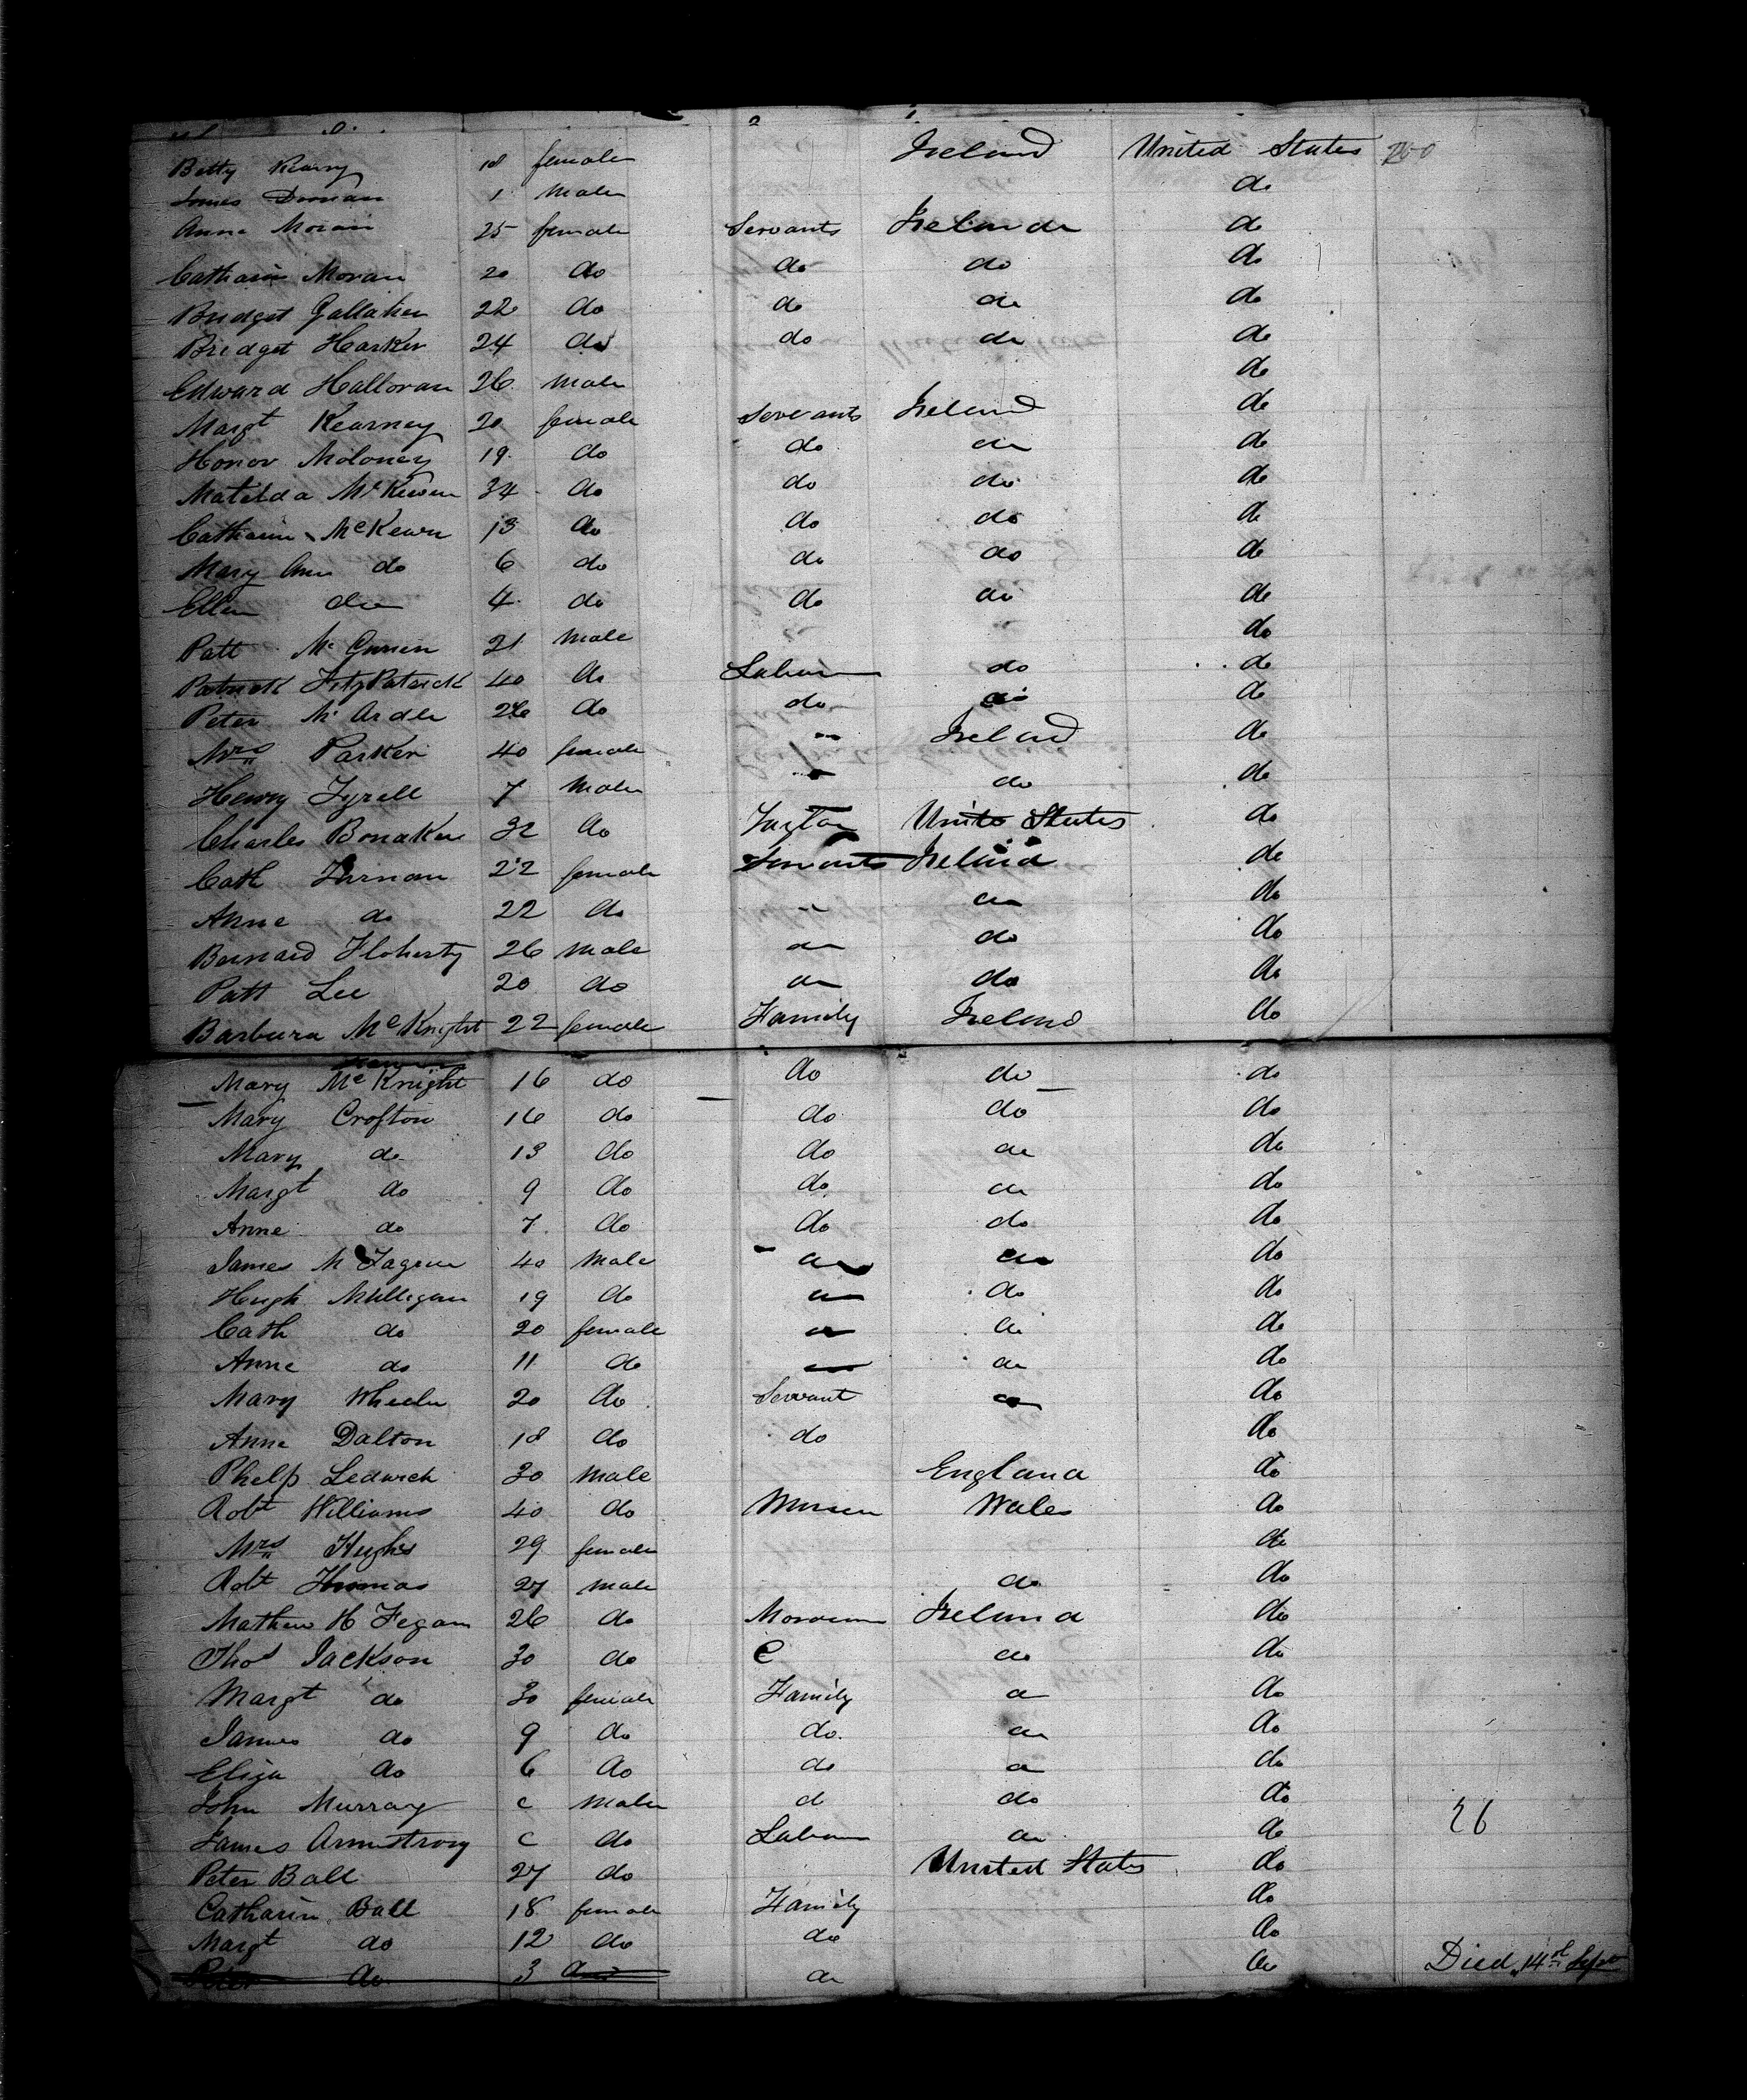 Betty Kearny 18 female Ireland United States 200
James Doonan 1 Male do
Anna Moran 25 female Servants Ireland do
Catharin Moran 20 do do do do
Bridget Gallaher 22 do do do do
Bridget Harker 24 do do do do
Edward Halloran 26 Male do
Margt Kearney 20 female Servants Ireland do
Honor Moloney 19 do do do do
Matilda McKewen 34 do do do do
Catharin McKewn 13 do do do do
Mary Ann do 6 do do do do
Ellen do 4 do do do do
Patt 21 Male do
Patrick FitzPatrick 40 do Labour do do
Peter McArdle 26 do do do do
Mrs Parker 40 female " Ireland do
Henry Tyrell 7 Male do do
Charles Bonaker 32 do United States do
Cath 22 female Servants Ireland do
Anne do 22 do do do
Bernard Floherty 26 Male do do do
Patt Lee 20 do do do do
Barbara McKnight 22 female Family Ireland do
Mary McKnight 16 do do do do
Mary Crofton 16 do do do do
Mary do 13 do do do do
Margt do 9 do do do do
Anne do 7 do do do do
James 40 Male do do do
Hugh Mulligan 19 do do do do
Cath do 20 female do do do
Anne do 11 do do do
Mary Wheeler 20 do Servant do do
Anne Dalton 18 do do do
Phelp Ledwich 30 Male England do
Robt Williams 40 do Wales do
Mrs Hughs 29 female do
Robt Thomas 27 Male do do
Mathew H Fegan 26 do Ireland do
Thos Jackson 30 do C do do
Margt do 30 female Family do do
James do 9 do do do do
Eliza do 6 do do do do
John Murray c Male d do do
James Armstrong c do Labour do do 26
Peter Ball 27 do United States do
Catharin Ball 18 female Family do
Margt do 12 do do do
Peter do 3 do do do Died 14th Sept